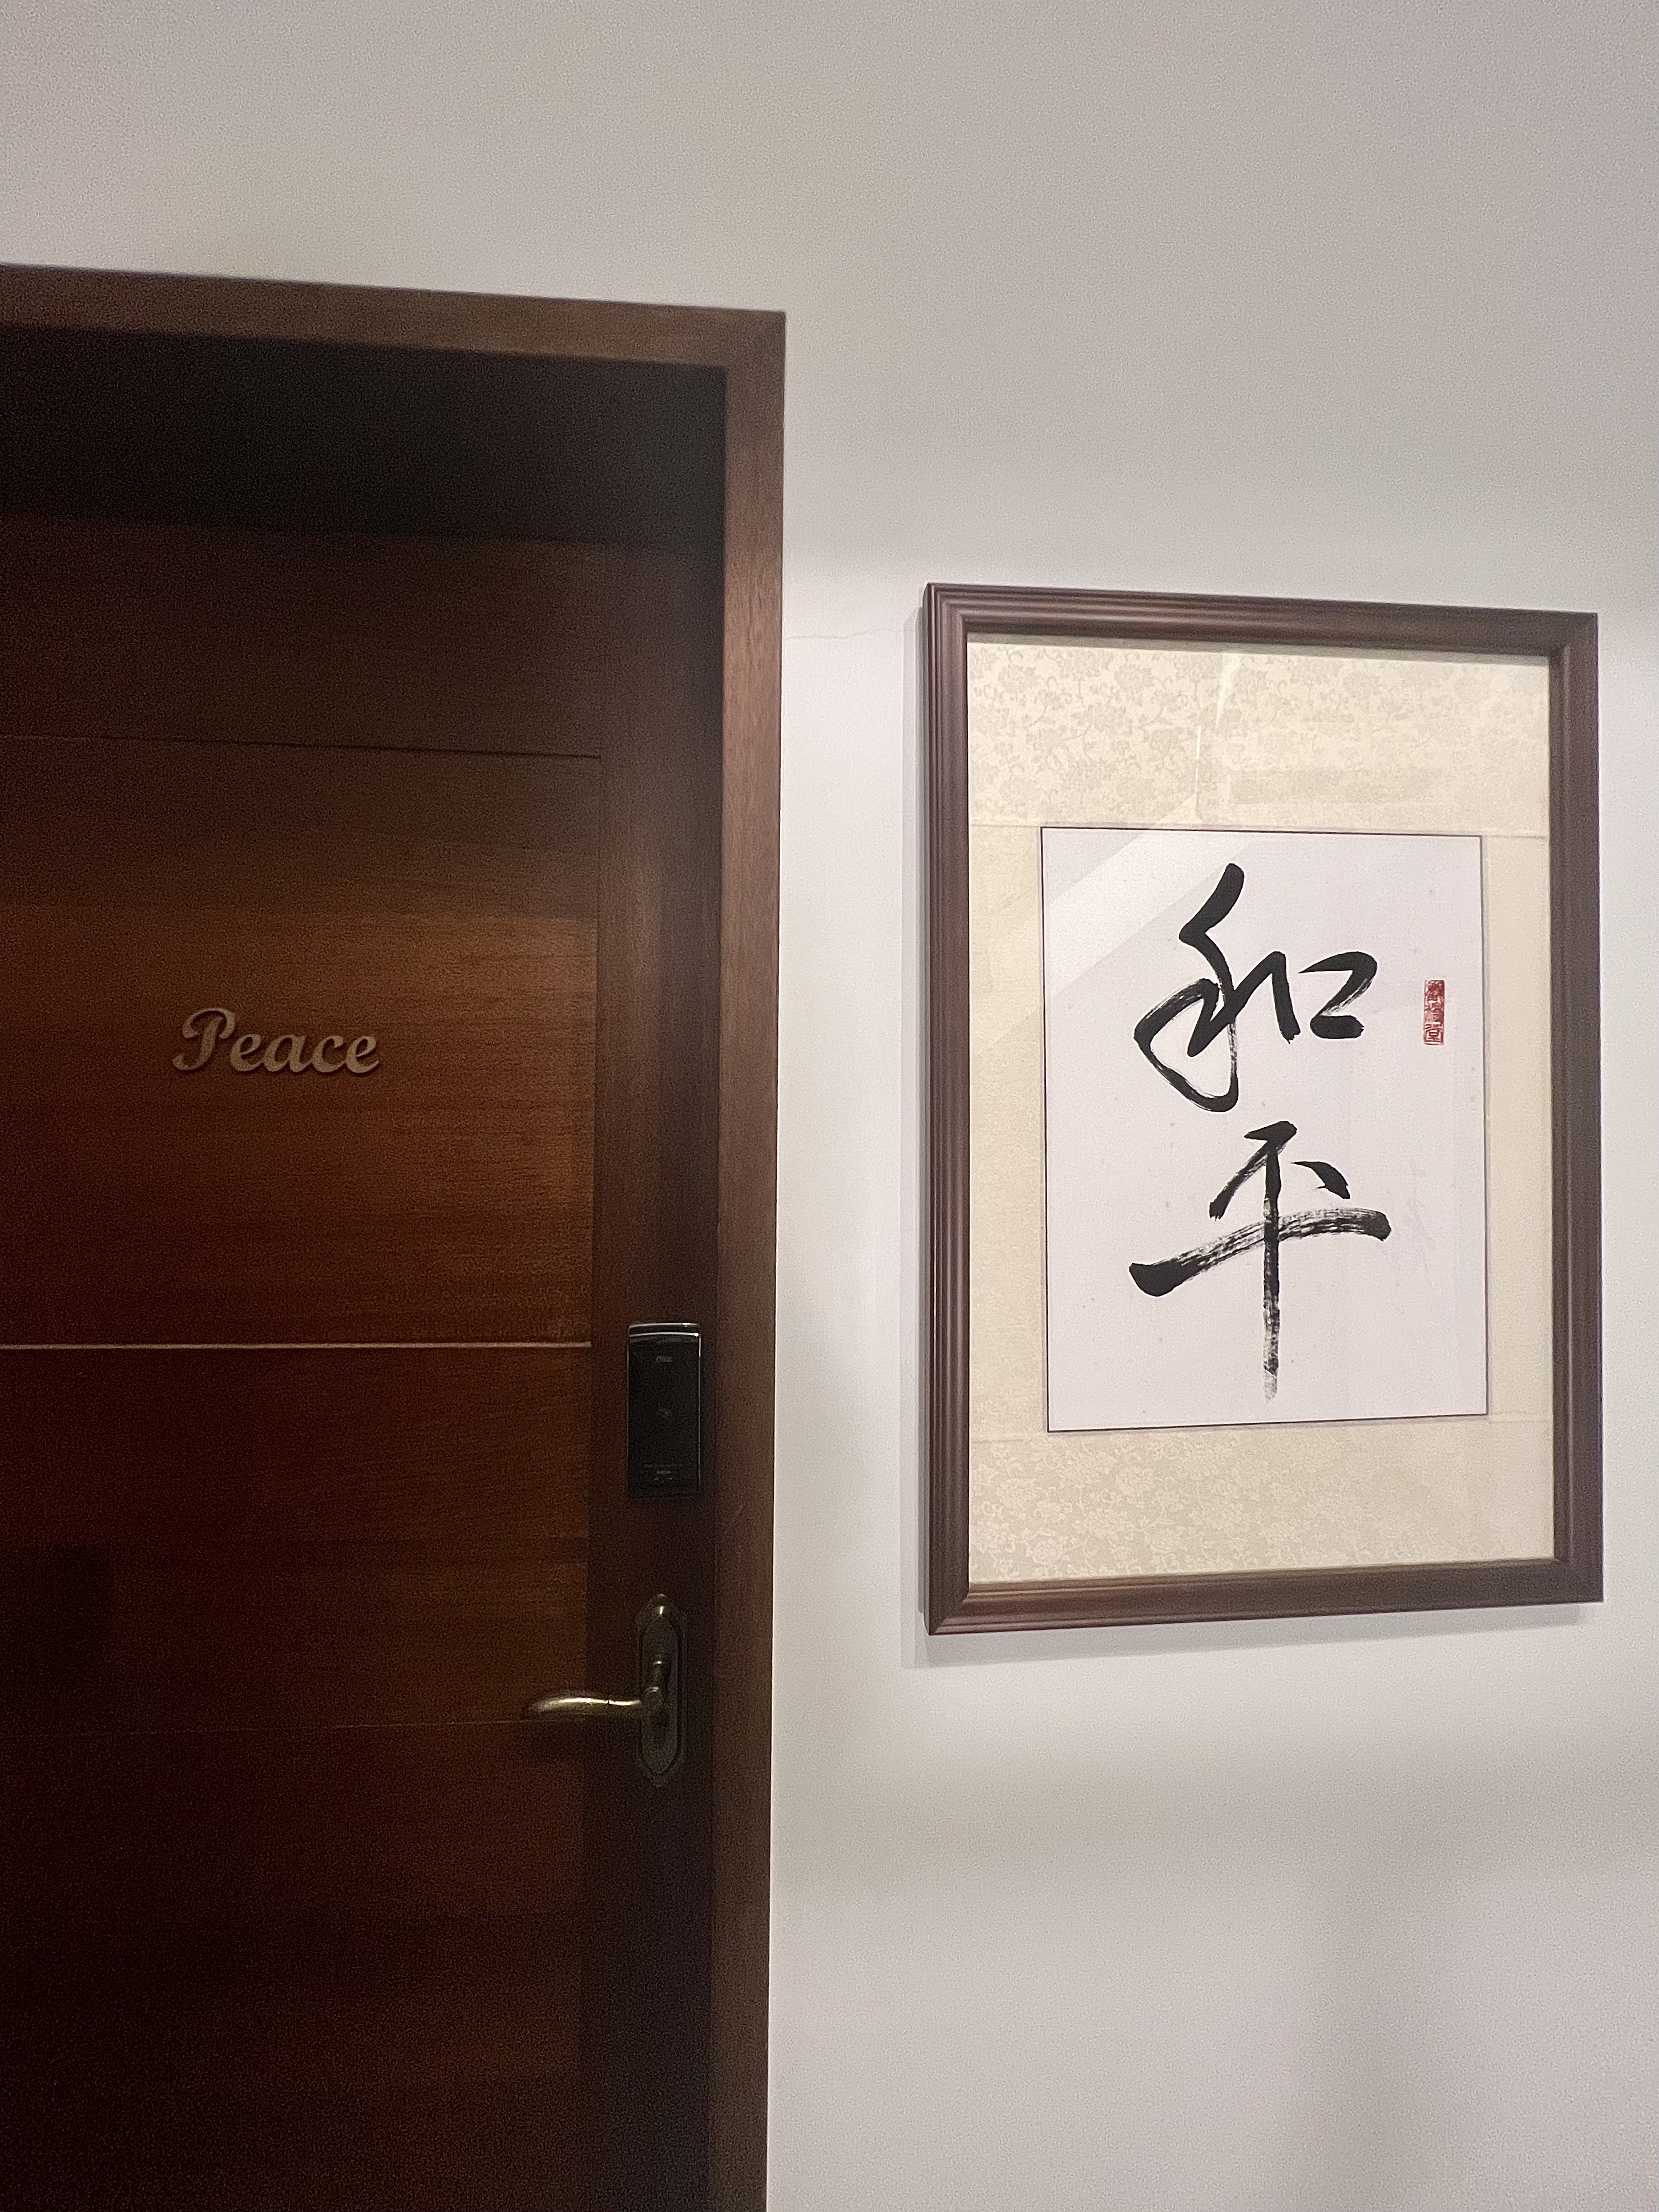 Peace
和
平